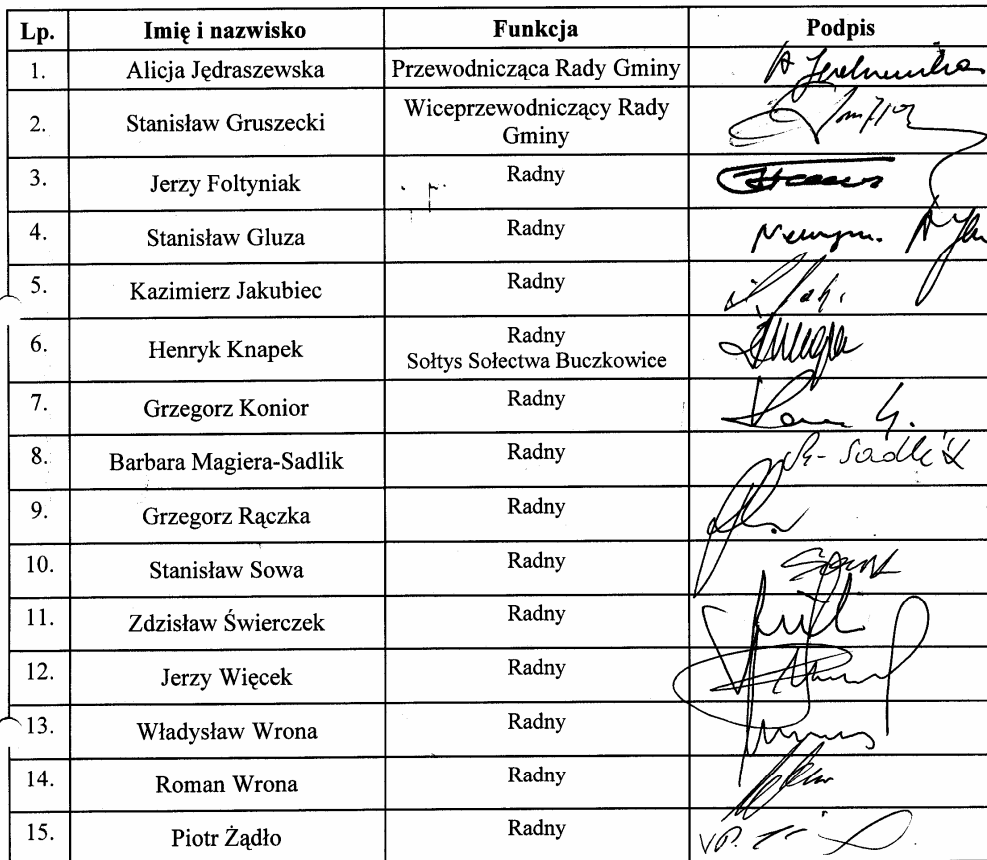 Lp. Imię i nazwisko Funkcja Podpis
1. Alicja Jędraszewska Przewodnicząca Rady Gminy
2. Stanisław Gruszecki Wiceprzewodniczący Rady
Gminy
3. Jerzy Foltyniak Radny
4. Stanisław Gluza Radny
5. Kazimierz Jakubiec Radny
6. Henryk Knapek Radny
Sołtys Sołectwa Buczkowice
7. Grzegorz Konior Radny
8. Barbara Magiera-Sadlik Radny Sadlik
9. Grzegorz Rączka Radny
10. Stanisław Sowa Radny
11. Zdzisław Świerczek Radny
12. Jerzy Więcek Radny
13. Władysław Wrona Radny
14. Roman Wrona Radny
15. Piotr Żądło Radny